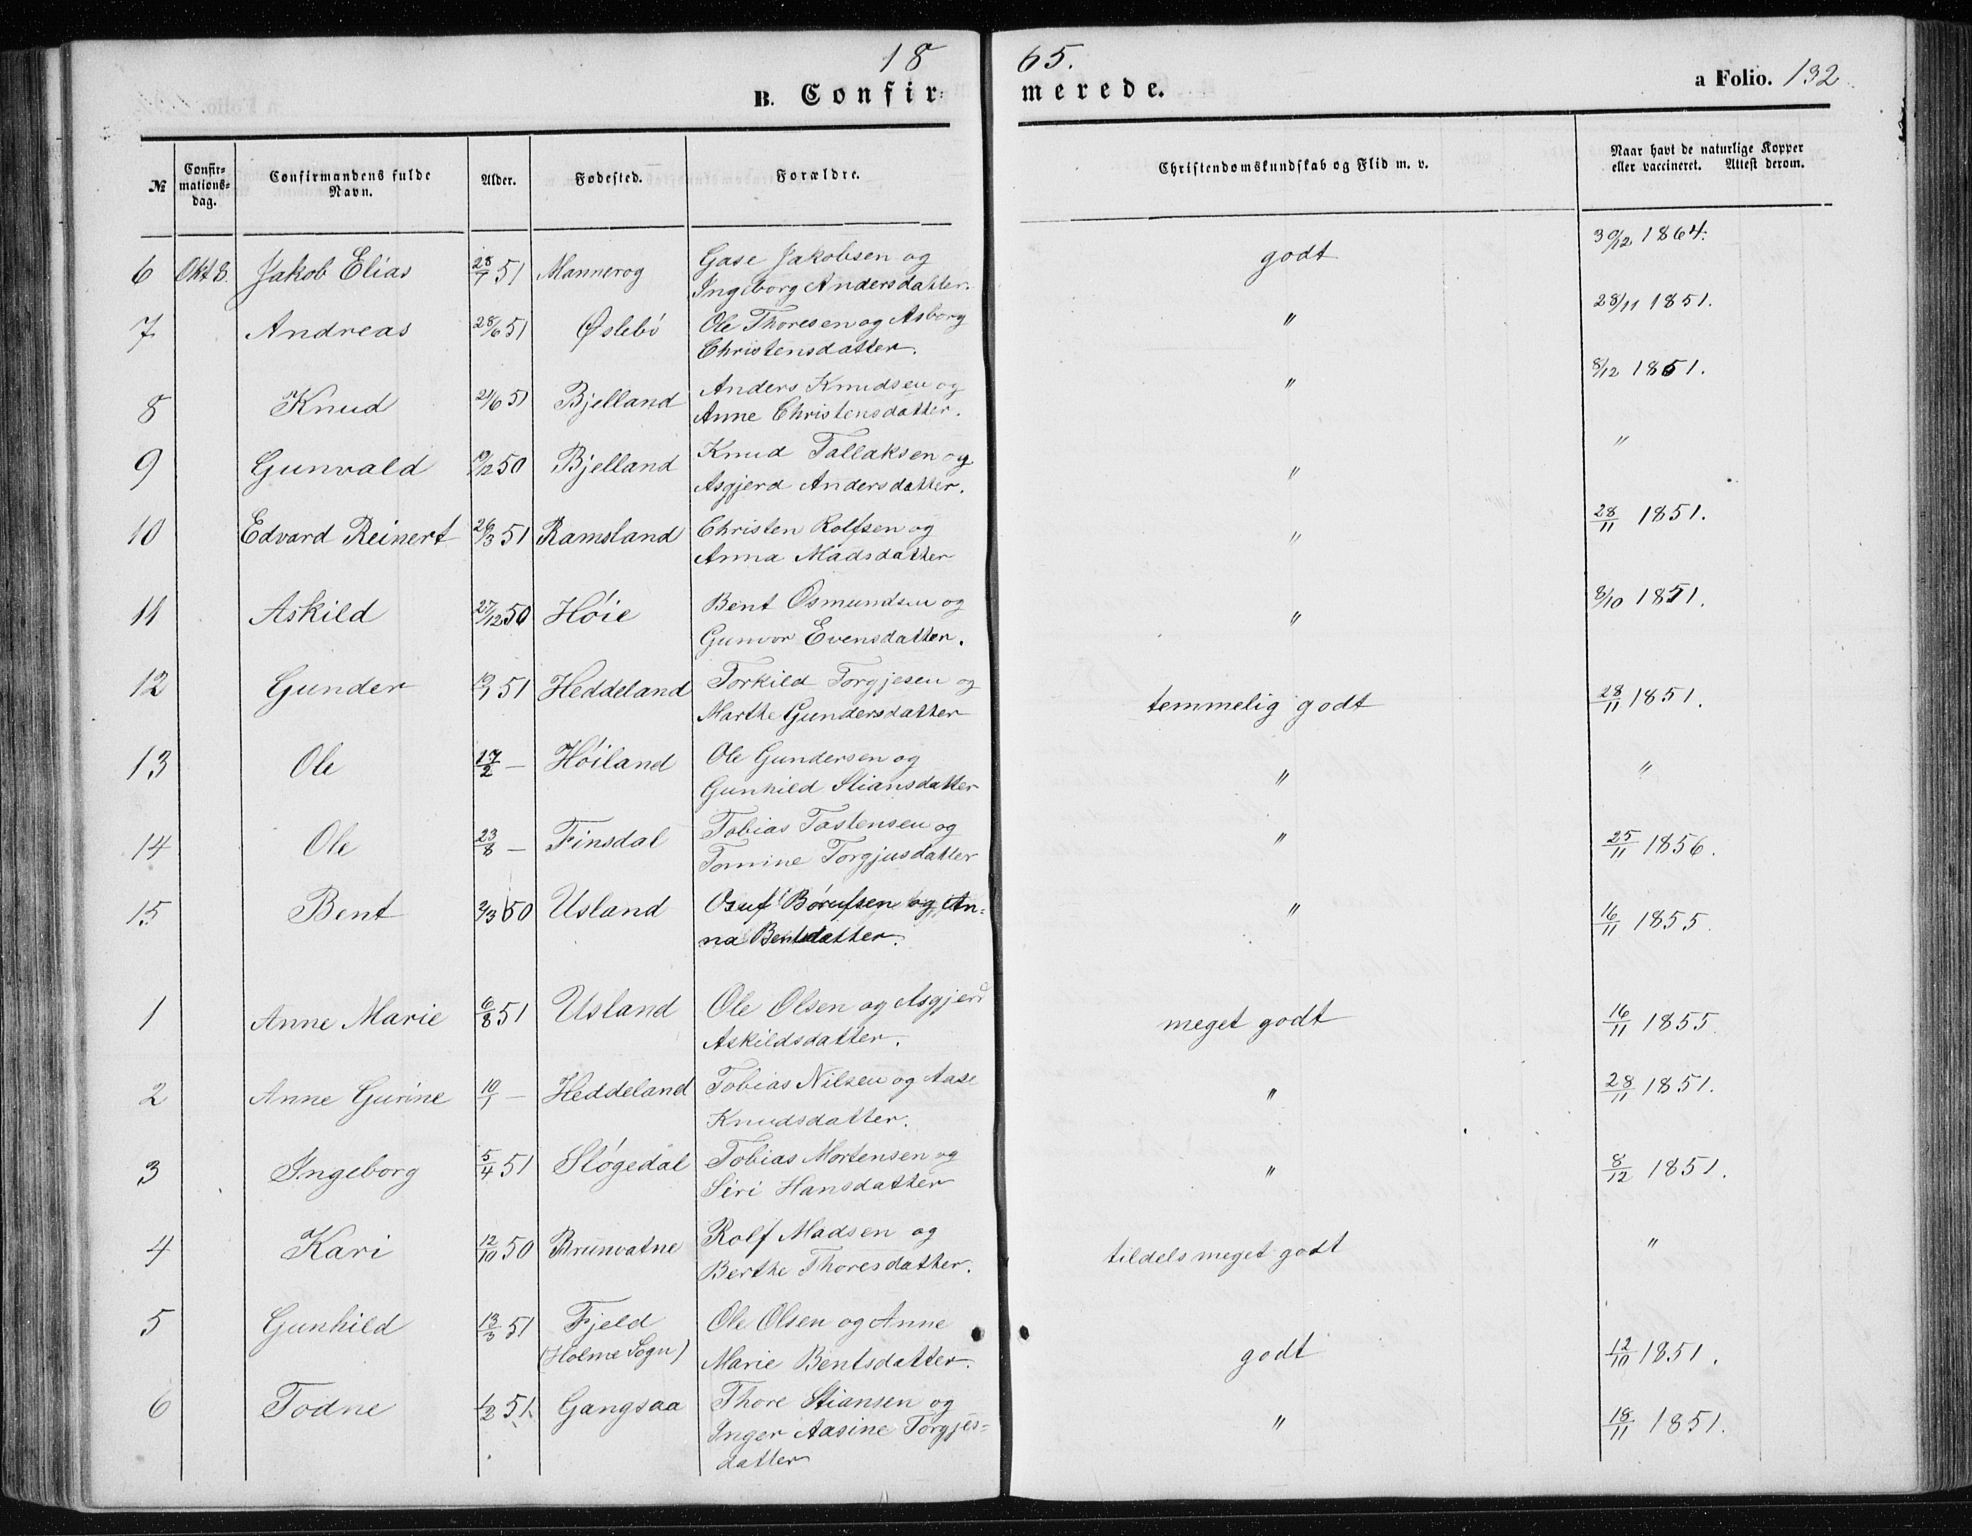 18 65.
B. Confir- merede. a Folio. 132
№ Confir-mations-dag. Confirmandens fulde Navn. Alder. Fødested. Forældre. Christendomskundskab og Flid m. v. Naar havt de naturlige Kopper eller vaccineret. Attest derom.
6 Okt 8. Jakob Elias 28/7 51 Mannerog Gase Jakobsen og godt 30/12 1864.
Ingeborg Andersdatter.
7 Andreas 28/6 51 Øslebö Ole Thoresen og Asborg " 28/11 1851.
Christensdatter.
8 Knud 21/6 51 Bjelland Anders Knudsen og " 8/12 1851.
Anne Christensdatter.
9 Gunvald 19/12 50 Bjelland Knud Tallaksen og " "
Asgjerd Andersdatter.
10 Edvard Reinert 26/3 51 Ramsland Christen Rolfsen og " 28/11 1851.
Anna Madsdatter
11 Askild 27/12 50 Höie Bent Osmundsen og " 8/10 1851.
Gunvor Evensdatter.
12 Gunder 51 Heddeland Torkild Torgjesen og temmelig godt 28/11 1851.
Marthe Gundersdatter
13 Ole 17/2 — Höiland Ole Gundersen og " "
Gunhild Stiansdatter
14 Ole 23/8 — Finsdal Tobias Tastensen og " 25/11 1856.
Tomine Torgjusdatter
15 Bent 2/3 50 Usland Osuf Börufsen og An- " 16/11 1855.
na Bentsdatter.
1 Anne Marie 6/8 51 Usland Ole Olsen og Asgjerd meget godt 16/11 1855.
Askildsdatter.
2 Anne Gurine 10/1 — Heddeland Tobias Nilsen og Aase " 28/11 1851.
Knudsdatter.
3 Ingeborg 5/4 51 Slögedal Tobias Mortensen og " 8/12 1851.
Siri Hansdatter
4 Kari 12/10 50 Brunvatne Rolf Madsen og tildels meget godt "
Berthe Thoresdatter.
5 Gunhild 13/3 51 Fjeld Ole Olsen og Anne godt 12/10 1851.
(Holme Sogn) Marie Bentsdatter.
6 Todne 1/2 51. Gangsaa Thore Stiansen og " 18/11 1851.
Inger Aasine Torgjes-
datter